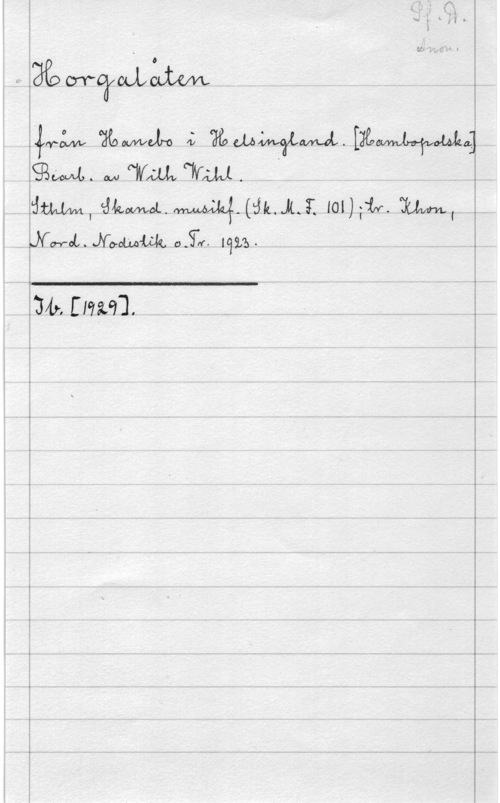 Pf. A.
Anon.
Horgalåten
från Hanebo i Helsingland. [Hambopolska]
Bearb. av Wilh Wihl.
Sthlm, Skand. musikf. (Sk. M. F. 101); tr. Khvn,
Nord. Nodestik o. Tr. 1923.
Ib. [1929].